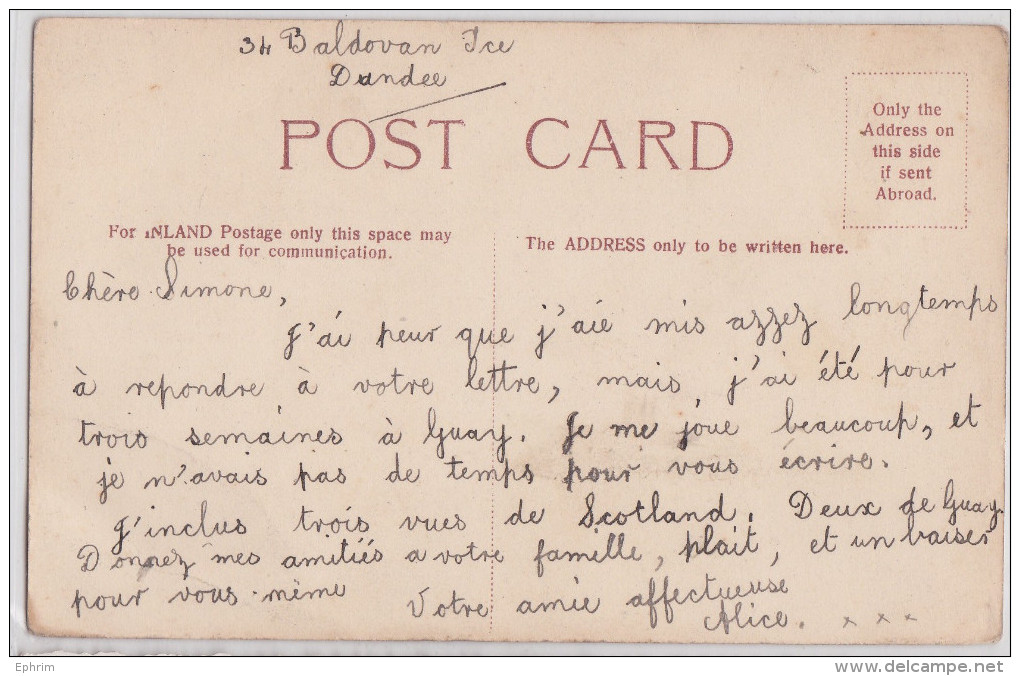 34 Baldovan Tce
Dundee
POST CARD
Only the
Address on
this side
if sent
Abroad.
For INLAND Postage only this space may
be used for communication.
The ADDRESS only to be written here.
Chère Simone,
J'ai peur que j'aie mis azzez longtemps
à repondre à votre lettre, mais j'ai été pour
trois semaines à Guay. Je me joue beaucoup, et
je n'avais pas de temps pour vous écrire.
J'inclus trois vues de Scotland. Deux de Guay.
Donnez mes amitiés a votre famille, plait, et un baiser
pour vous-même
Votre amie affectueuse
Alice. x x x
Ephrim
www.delcampe.net